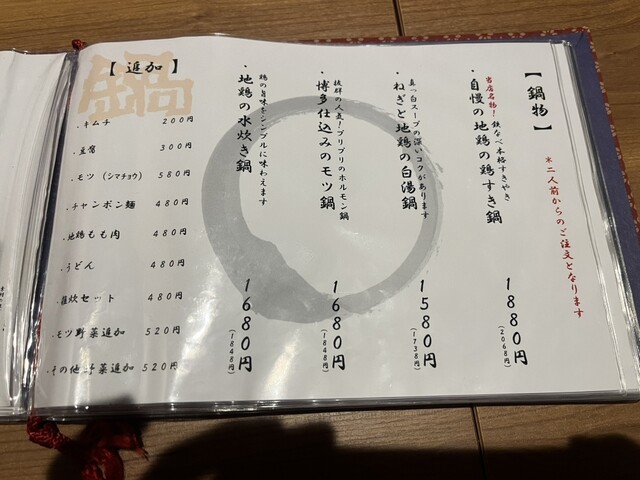 【 鍋物 】
＊二人前からのご注文となります
当店名物！鉄なべ本格すきやき
・自慢の地鶏の鶏すき鍋
1880円
(2068円)
真っ白スープの深いコクがあります
・ねぎと地鶏の白湯鍋
1580円
(1738円)
抜群の人気！プリプリのホルモン鍋
・博多仕込みのモツ鍋
1680円
(1848円)
鶏の旨味をシンプルに味わえます
・地鶏の水炊き鍋
1680円
(1848円)
鍋
【 追加 】
・キムチ 200円
・豆腐 300円
・モツ (シマチョウ) 580円
・チャンポン麺 480円
・地鶏もも肉 480円
・うどん 480円
・雑炊セット 480円
・モツ野菜追加 520円
・その他野菜追加 520円